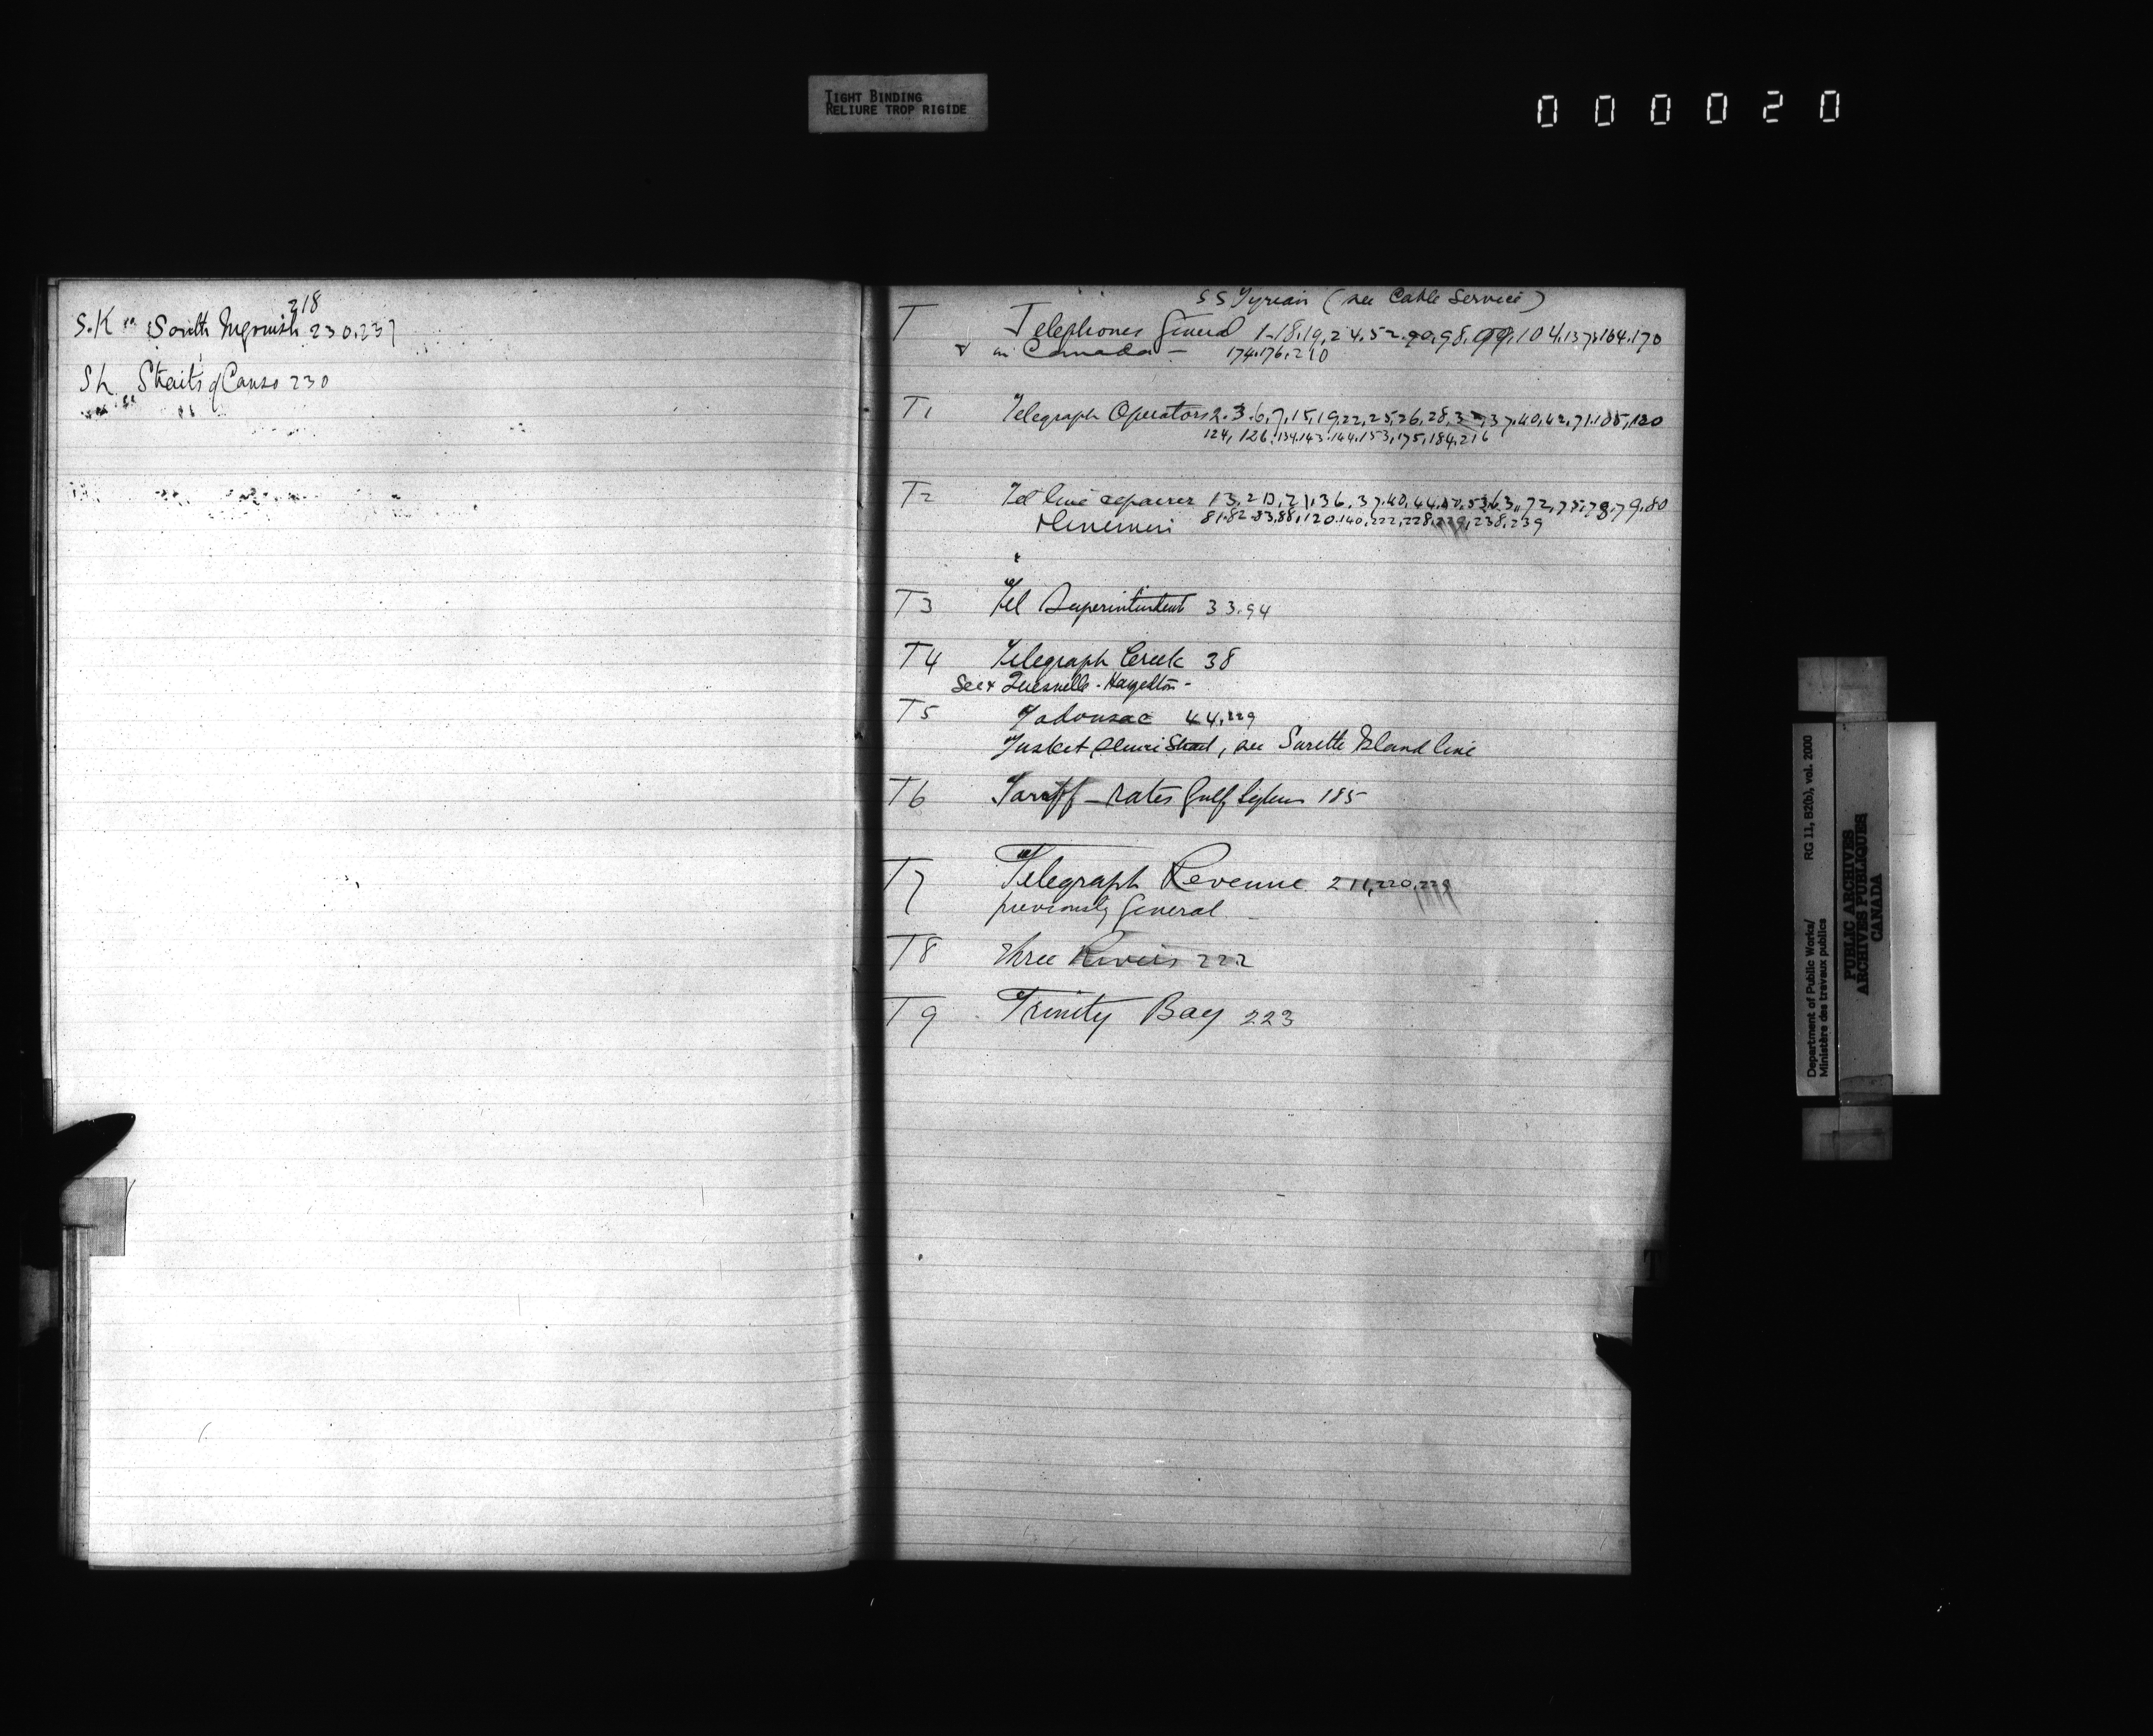 TIGHT BINDING
RELIURE TROP RIGIDE
000020
218
S.K South Ingonish 230.237
SL Straits of Canso 230
SS Tyrian (see Cable Service)
T Telephones General 1-18.19.24.52.90.98.99.104.137.164.170
& in Canada - 174.176.210
T1 Telegraph Operators 2.3.6.7.15.19.22.25.26.28.32.37.40.42.71.105.120
124, 126.134.143.144.153.175.184.216
T2 Tel line repairer 13.20.21.36.37.40.44.50.53.63.72.75.78.79.80
& linemen 81.82.83.88.120.140.222.228.229.238.239
T3 Tel Superintendent 33.94
T4 Telegraph Creek 38
See Quesnelle - Hazelton -
T5 Tadousac 44.229
Tusket, see Surette Island line
T6 Tariff - rates Gulf System 185
T7 Telegraph Revenue 211,220,229
previously General
T8 Three Rivers 222
T9 Trinity Bay 223
T
Department of Public Works/ RG 11, B2(b), vol. 2000
Ministère des travaux publics
PUBLIC ARCHIVES
ARCHIVES PUBLIQUES
CANADA